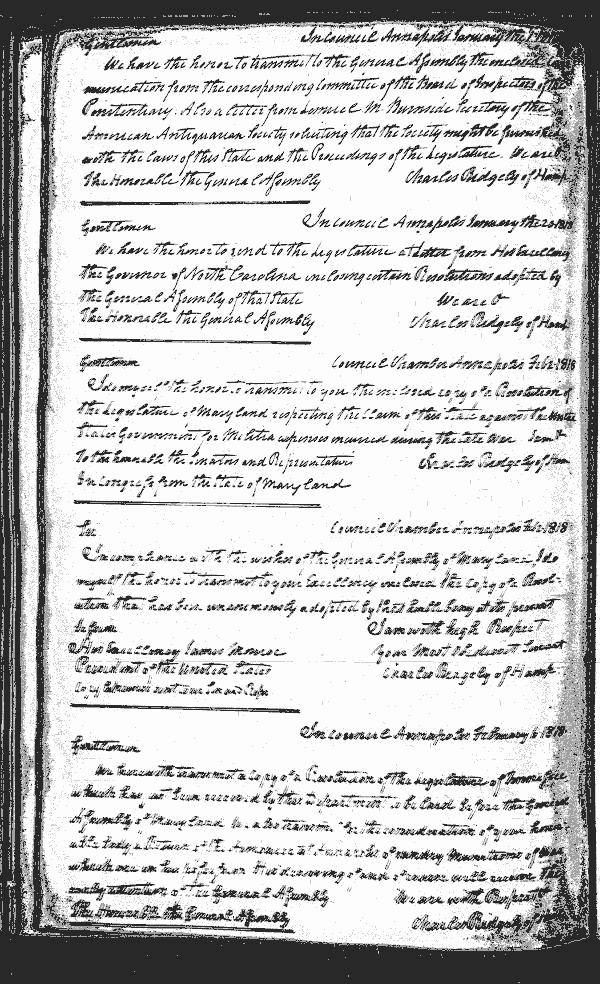 Gentlemen In Council Annapolis January the
We have the honor to transmit to the General Assembly the enclosed com
munication from the corresponding Committee of the Board of Inspectors of the
Penitentiary. Also a letter from Samuel M. Burnside Secretary of the
American Antiquarian Society soliciting that the Society might be furnished
with the Laws of this State and the Proceedings of the Legislature. We are &
The Honorable the General Assembly Charles Ridgely of Hamp
Gentlemen In Council Annapolis January the 20 1818
We have the honor to send to the Legislature a letter from His Excellency
the Governor of North Carolina inclosing certain Resolutions adopted by
the General Assembly of that State We are &
The Honorable the General Assembly Charles Ridgely of Hamp
Gentlemen Council Chamber Annapolis Feb 1818
I do myself the honor to transmit to you the inclosed copy of a Resolution of
the Legislature of Maryland respecting the Claim of this State against the United
States Government for Militia expenses incurred during the late War I am &
To the honorable the Senators and Representatives Charles Ridgely of Ham
in Congress from the State of Maryland
Sir Council Chamber Annapolis Feb 1818
In compliance with the wishes of the General Assembly of Maryland I do
myself the honor to transmit to your Excellency inclosed the copy of a Resol-
ution that has been unanimously adopted by that body at its present
Session I am with high Respect
His Excellency James Monroe your Most Obedient Servant
President of the United States Charles Ridgely of Hamp
Copy
In Council Annapolis February 6 1818
Gentlemen
We herewith transmit a Copy of a Resolution of the Legislature of Tennessee
which has just been received by this Department to be laid before the General
Assembly of Maryland. We also transmit for the consideration of your honor-
able body a Return of the Armourer at Annapolis of sundry Munitions of War
which are in the
early attention of the General Assembly. We are with Respect &
The Honorable the General Assembly Charles Ridgely of